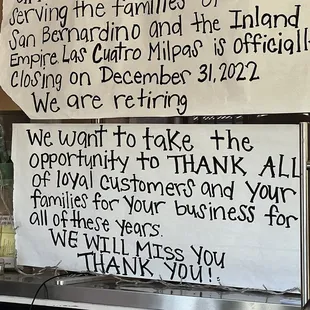 Serving the families of
San Bernardino and the Inland
Empire Las Cuatro Milpas is officiall
Closing on December 31, 2022
We are retiring
We want to take the
opportunity to THANK ALL
of loyal customers and your
families for your business for
all of these years.
WE WILL MISS YOU
THANK YOU!